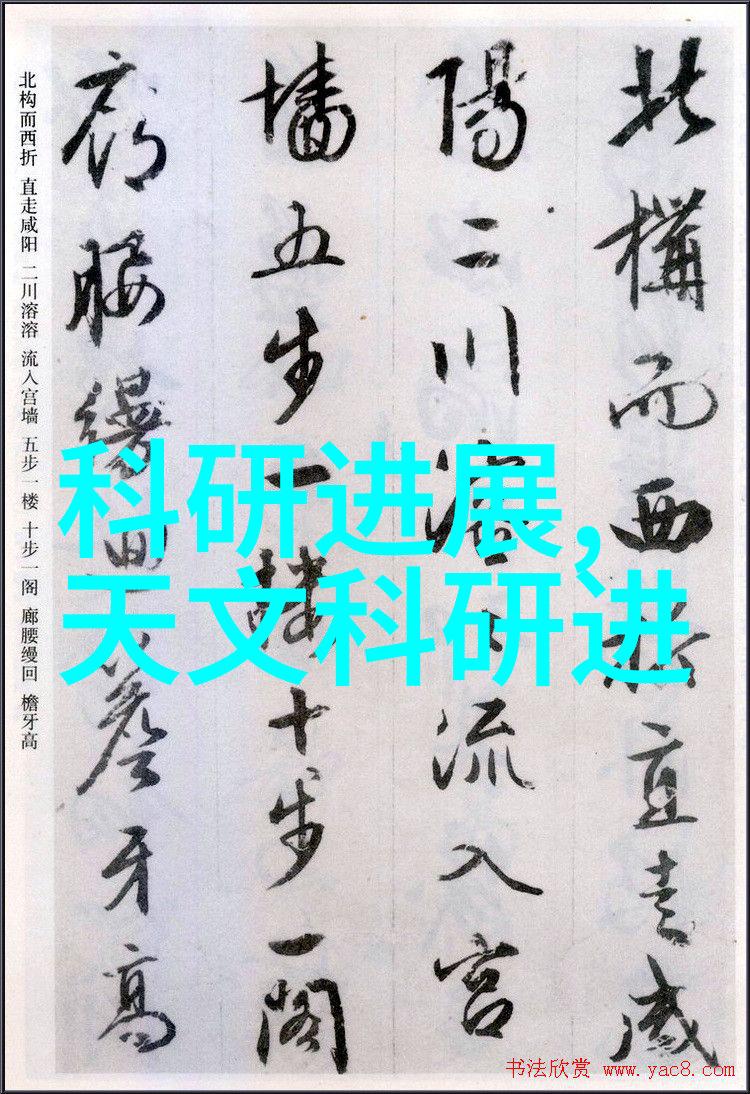 北構而西折直走咸
陽二川溶々流入宫
墙五步一樓十步一閣
廊腰縵迴簷牙高
北构而西折 直走咸阳 二川溶溶 流入宫墙 五步一楼 十步一阁 廊腰缦回 檐牙高
科研进展,
天文科研进
书法欣赏 www.yac8.com